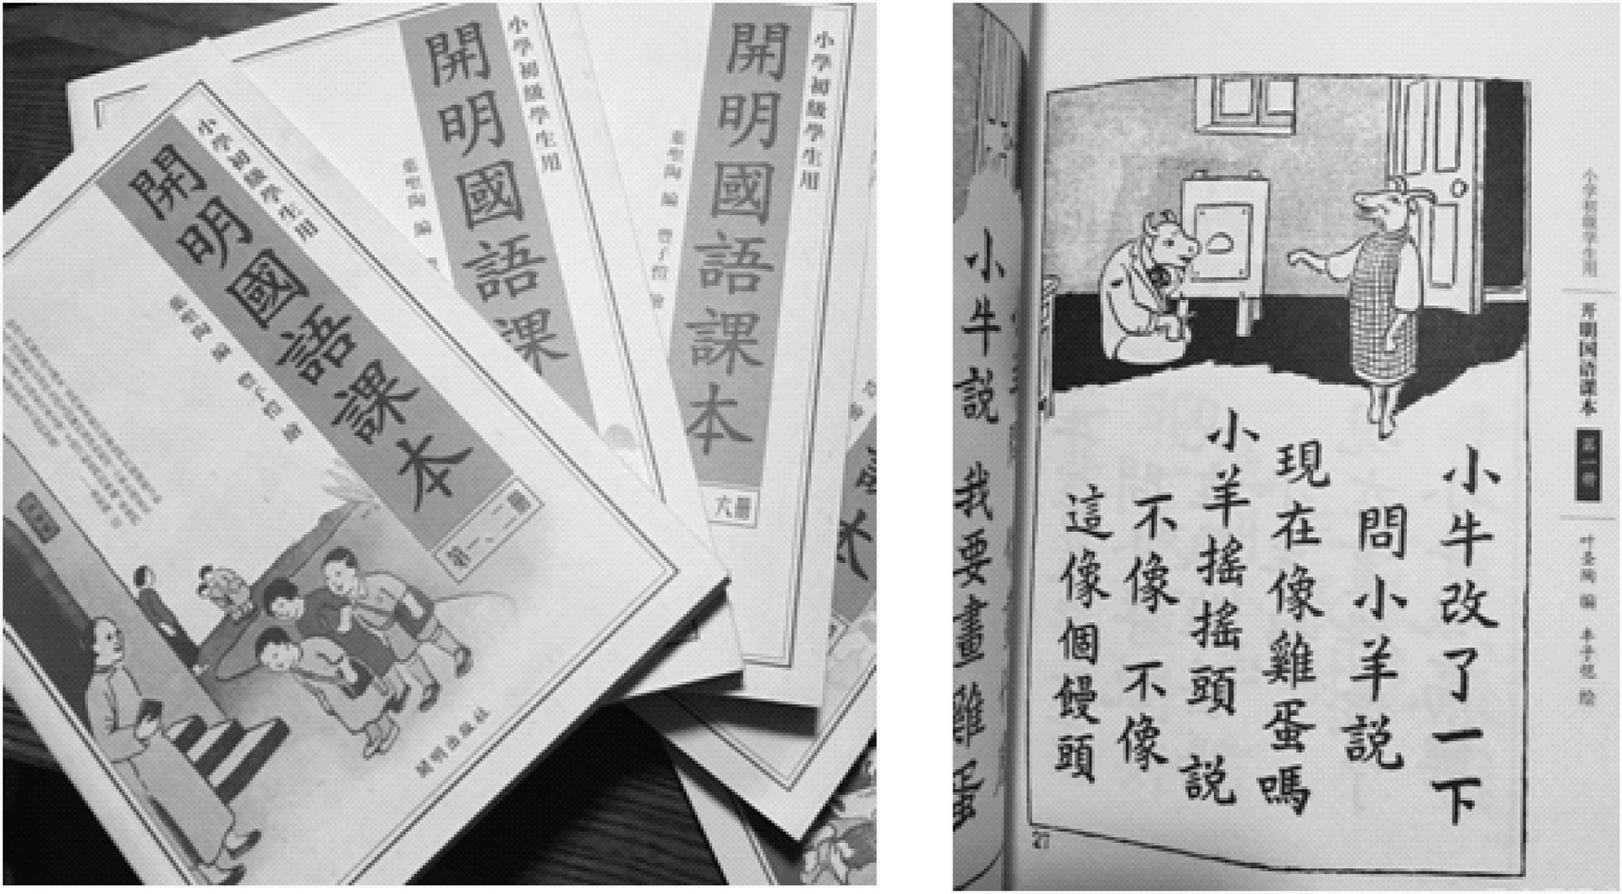 小學初級學生用
開明國語課本
葉聖陶 編 豐子愷 繪
第一、二冊
開明出版社
小學初級學生用
開明國語課
葉聖陶 編
小學初級學生用
開明國語課本
葉聖陶 編 豐子愷 繪
六冊
小学初级学生用
开明国语课本
第一册
叶圣陶 编 丰子恺 绘
小牛改了一下
問小羊説
現在像雞蛋嗎
小羊搖搖頭 説
不像 不像
這像個饅頭
27
小牛説 我要畫雞蛋